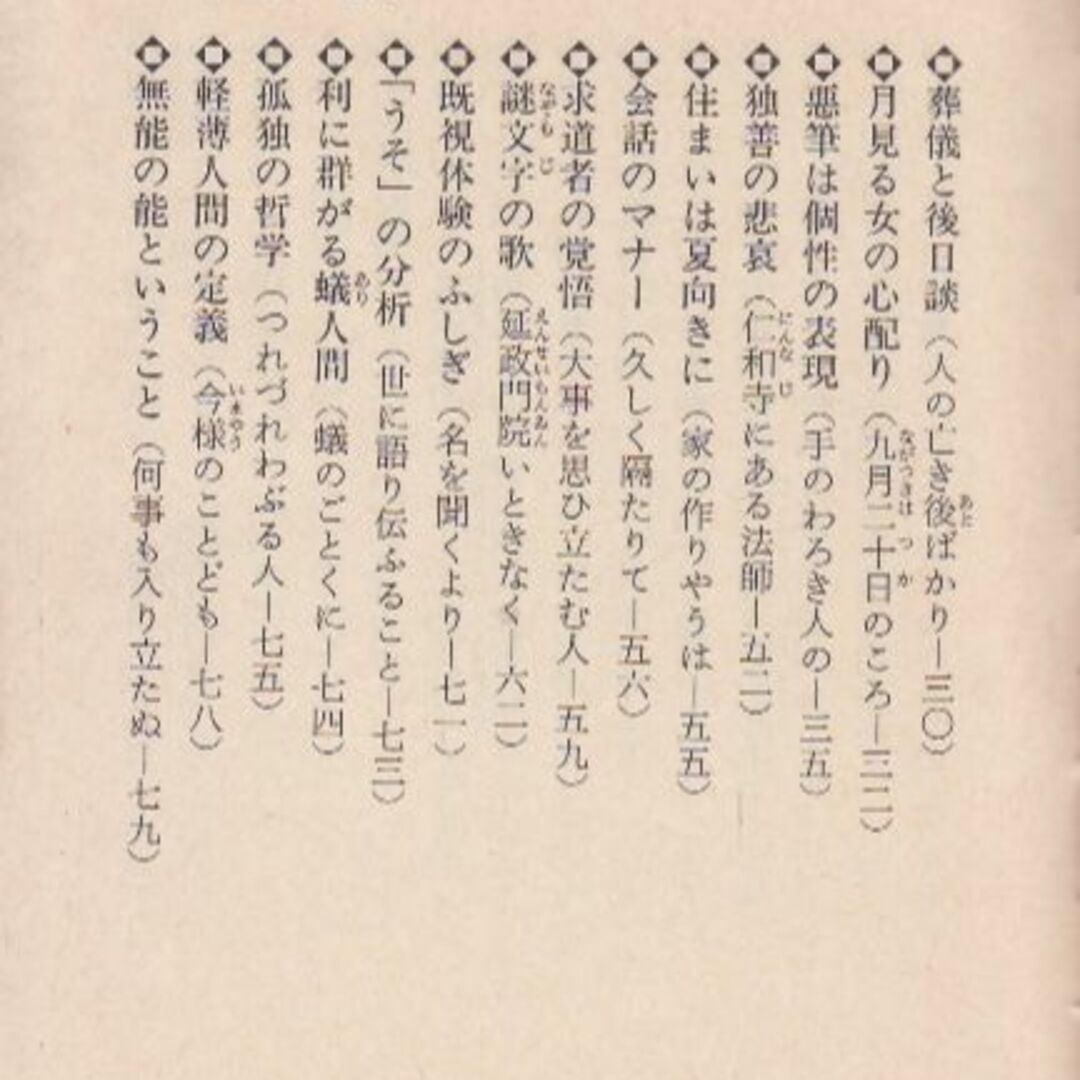 ◆葬儀と後日談（人の亡き後ばかり―三〇）
◆月見る女の心配り（九月二十日のころ―三二）
◆悪筆は個性の表現（手のわろき人の―三五）
◆独善の悲哀（仁和寺にある法師―五二）
◆住まいは夏向きに（家の作りやうは―五五）
◆会話のマナー（久しく隔たりて―五六）
◆求道者の覚悟（大事を思ひ立たむ人―五九）
◆謎文字の歌（延政門院いときなく―六二）
◆既視体験のふしぎ（名を聞くより―七一）
◆「うそ」の分析（世に語り伝ふること―七三）
◆利に群がる蟻人間（蟻のごとくに―七四）
◆孤独の哲学（つれづれわぶる人―七五）
◆軽薄人間の定義（今様のことども―七八）
◆無能の能ということ（何事も入り立たぬ―七九）